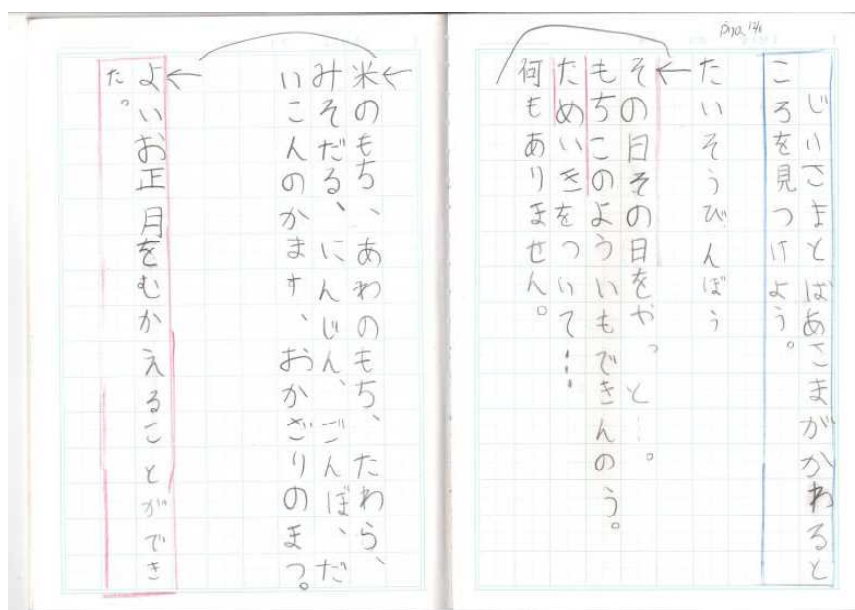 じいさまとばあさまがかわると
ころを見つけよう。
たいそうびんぼう
その日その日をやっと…。
もちこのよういもできんのう。
ためいきをついて…
何もありません。
米のもち、あわのもち、たわら、
みそだる、にんじん、ごんぼ、だ
いこんのかます、おかざりのまつ。
よいお正月をむかえることができ
た。